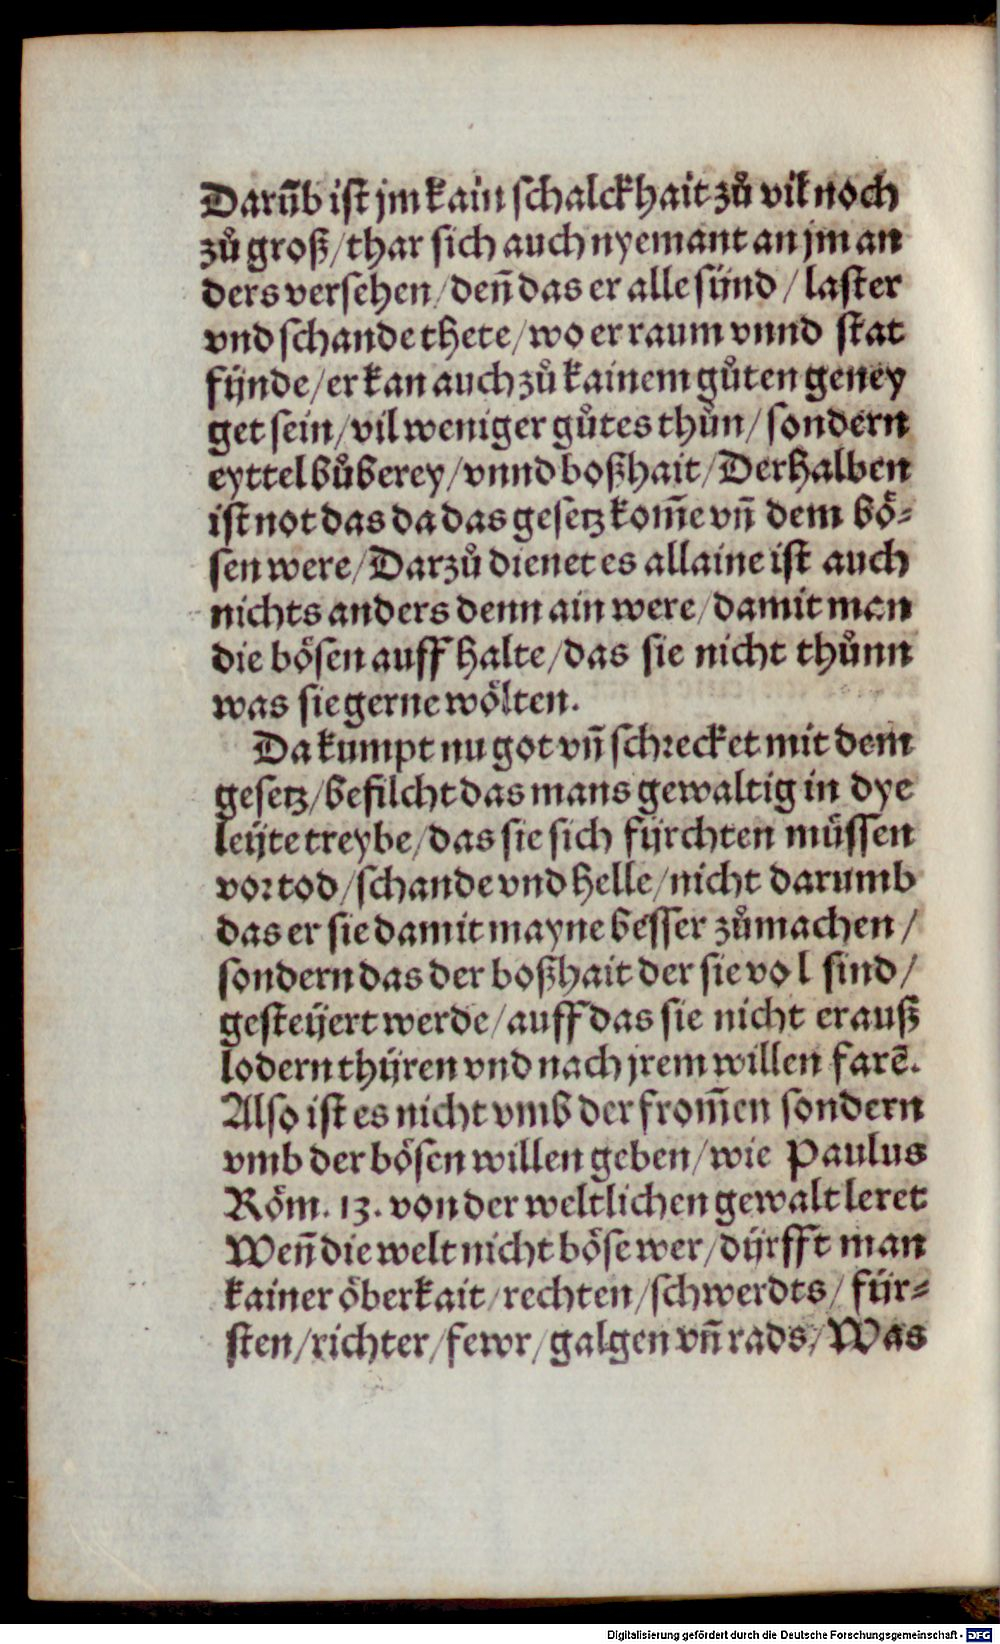 Darūb ist jm kain schalckhait zů vil noch
zů groß/thar sich auch nyemant an jm an
ders versehen/deñ das er alle sünd/laster
vnd schande thete/wo er raum vnnd stat
fÿnde/er kan auch zů kainem gůten geney
get sein/vil weniger gůtes thůn/sondern
eyttel bůberey/vnnd boßhait/Derhalben
ist not das da das gesetz kom̄e vñ dem bö⸗
sen were/Darzů dienet es allaine ist auch
nichts anders denn ain were/damit man
die bösen auff halte/das sie nicht thůnn
was sie gerne wölten.
Da kumpt nu got vñ schrecket mit dem
gesetz/befilcht das mans gewaltig in dye
leÿte treybe/das sie sich fÿrchten müssen
vor tod/schande vnd helle/nicht darumb
das er sie damit mayne besser zůmachen/
sondern das der boßhait der sie vol sind/
gesteÿert werde/auff das sie nicht erauß
lodern thÿren vnd nach jrem willen farē.
Also ist es nicht vmb der from̄en sondern
vmb der bösen willen geben/wie Paulus
Röm. 13. von der weltlichen gewalt leret
Weñ die welt nicht böse wer/dÿrfft man
kainer öberkait/rechten/schwerdts/für⸗
sten/richter/fewr/galgen vñ rads/Was
Digitalisierung gefördert durch die Deutsche Forschungsgemeinschaft - DFG